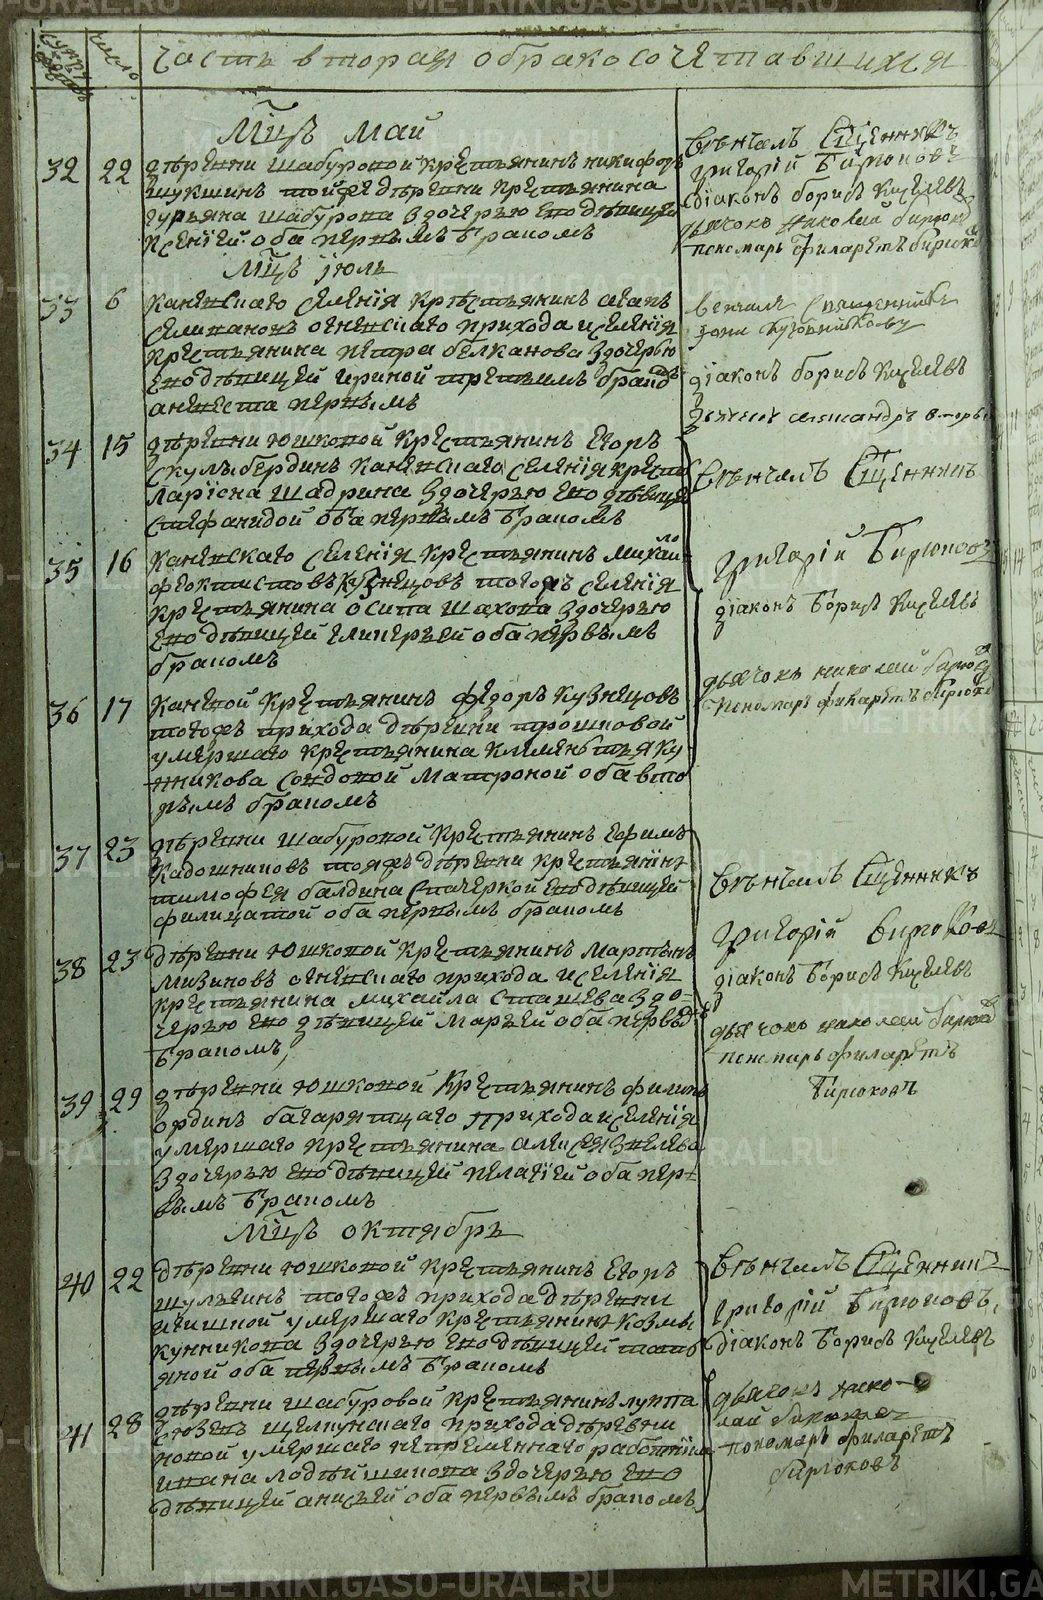 часть вторая о бракосочетавшихся
число
Мцъ Май
32 22 деревни Шабуровой крестьянинъ Никифоръ
Шукшинъ тойже деревни крестьянина
Гурьяна Шабурова здочерью ево девицей
Ксенiей оба первымъ бракомъ
венчалъ Сщенникъ
Григорiй Бирюковъ
дiаконъ Борисъ Киселевъ
дьячокъ Николай Бирюков
пономарь Филаретъ Бирюков
Мцъ iюль
33 6 Каменскаго селенiя крестьянинъ
Селивановъ огневскаго прихода и селенiя
крестьянина Петра Белканова здочерью
ево девицей Ириной третьимъ бракомъ
а невеста первымъ
венчалъ Священникъ
дiаконъ Борисъ Киселевъ
34 15 деревни Юшковой крестьянинъ Егоръ
Скулыбердинъ Каменскаго селенiя крест
Ларiона Шадрина здочерью ево девице
Стефанидой оба первымъ бракомъ
венчалъ Сщенникъ
35 16 Каменскаго селенiя крестьянинъ Михайло
Феоктистовъ Кузнецовъ тогожъ селенiя
крестьянина Осипа Шахова здочерью
ево девицей Гликерьей оба первымъ
бракомъ
Григорiй Бирюковъ
дiаконъ Борисъ Киселевъ
дьячокъ Николай Бирюков
пономарь Филаретъ Бирюков
36 17 крестьянинъ Федоръ Кузнецовъ
тогожъ прихода деревни Трошковой
умершаго крестьянина Климентья Ку
нникова совдовой Матроной оба вто
рымъ бракомъ
37 23 деревни Шабуровой крестьянинъ Ефимъ
Кадошниковъ тояже деревни крестьянин
Тимофея Балдина спачеркой ево девицей
Филицатой оба первымъ бракомъ
венчалъ Сщенникъ
Григорiй Бирюков
38 23 деревни Юшковой крестьянинъ Мартынъ
Мизиновъ огневскаго прихода и селенiя
крестьянина Михайла Сташева здо-
черью ево девицей Марьей оба первы
бракомъ
дiаконъ Борисъ Киселевъ
дьячокъ Николай Бирюков
пономарь Филаретъ
Бирюковъ
39 29 деревни Юшковой крестьянинъ Филипъ
Ординъ багаряцкаго прихода и селенiя
умершаго крестьянина Алексея
здочерью ево девицей Пелагiей оба пер-
вымъ бракомъ
Мцъ октябрь
40 22 деревни Юшковой крестьянинъ Егоръ
Шульгинъ тогожъ прихода деревни
умершаго крестьянина Козмы
Кунникова здочерью ево девицей Тать
яной оба первымъ бракомъ
венчалъ Сщенник
Григорiй Бирюковъ,
дiаконъ Борисъ Киселевъ
41 28 деревни Шабуровой крестьянинъ Луппа
Зюзевъ Щелкунскаго прихода деревни
новой умершаго непременнаго работника
Ивана Лодейщикова здочерью ево
девицей Анисьей оба первымъ бракомъ
дьячокъ Нико-
лай Бирюков
пономарь Филаретъ
Бирюковъ
METRIKI.GASO-URAL.RU